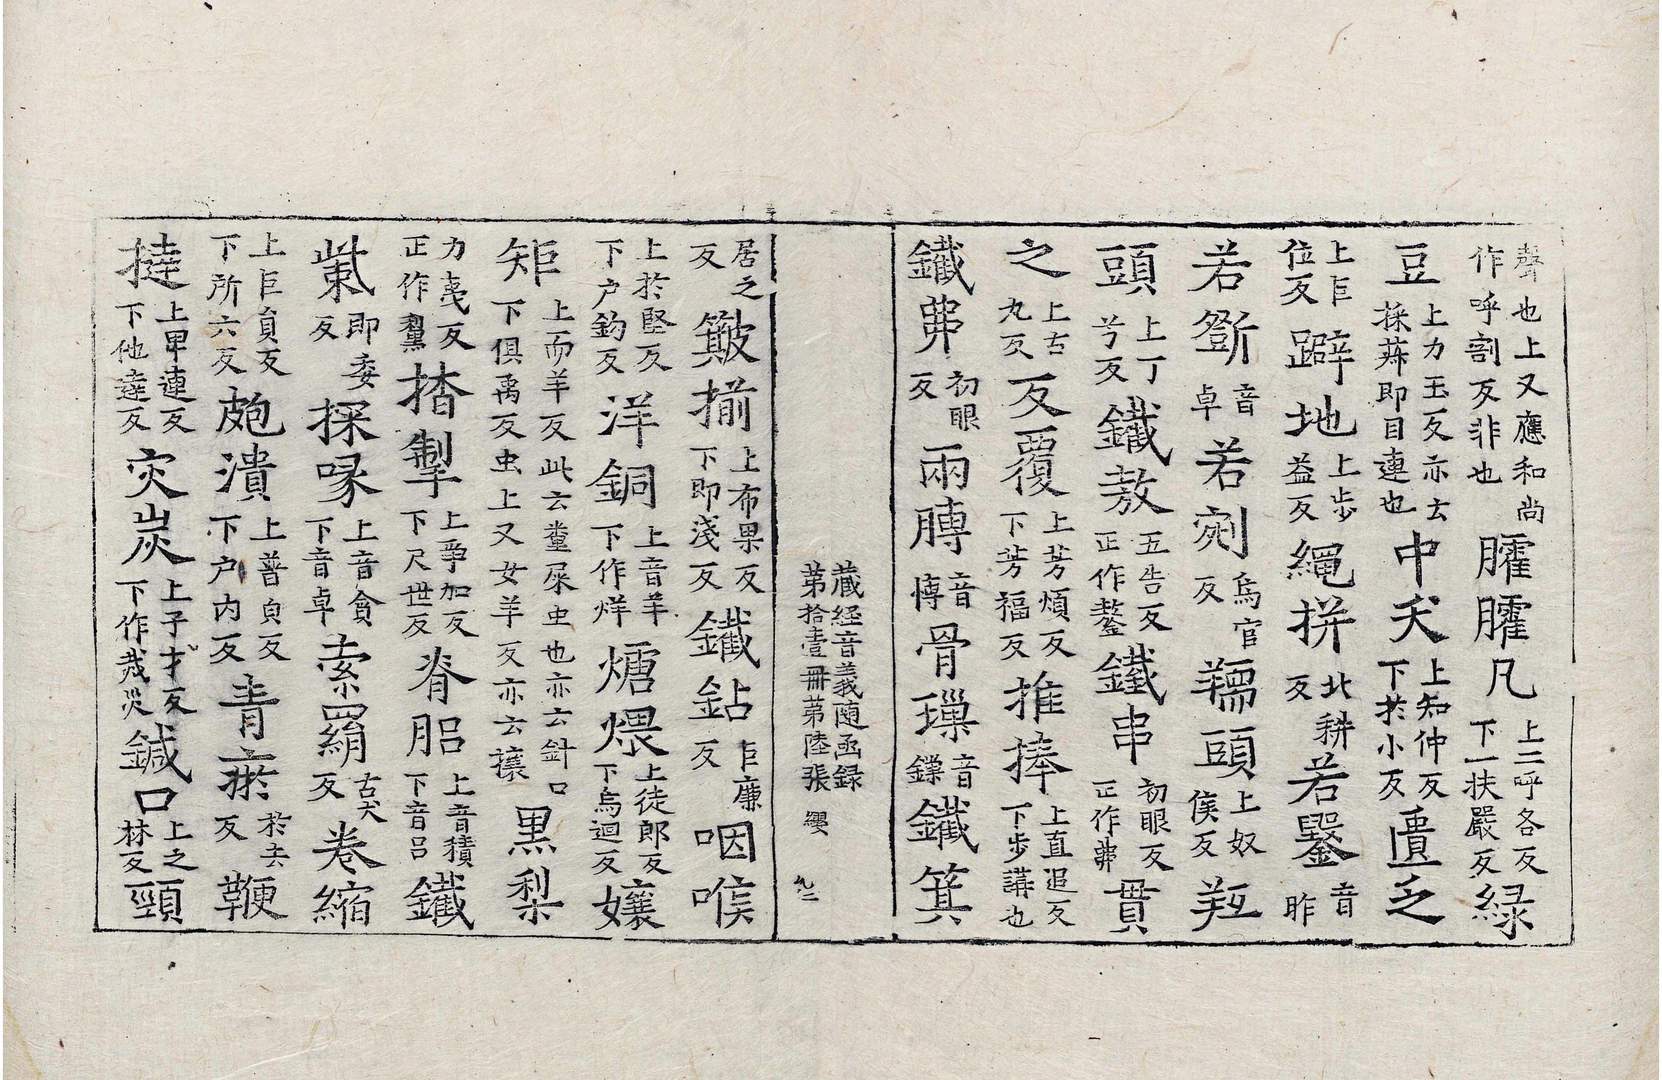 聲也上又應和尚作呼割反非也臛臛凡上二呼各反下一扶嚴反緑
豆上力玉反亦云䅦䔧即目連也中夭上知仲反下於小反匱乏
上巨位反躃地上步益反繩拼北耕反若鑿音昨
若斵音卓若剜烏官反羺頭上奴侯反羖
頭上丁兮反鐵敖五告反正作鏊鐵串初眼反正作丳貫
之上古九反反覆上芳煩反下芳福反推捧上直追反下步講也
鐵丳初眼反兩膊音博骨璅音鏁鐵箕
藏經音義隨函録第拾壹冊第陸張 纓 九二
居之反簸揃上布果反下即淺反鐵鉆巨廉反咽喉
上於堅反下户鈎反洋銅上音羊下作烊煻煨上徒郎反下烏迴反孃
矩上而羊反此云糞屎虫也亦云針口虫上又女羊反亦云蘘下俱禹反黑梨
力夷反正作黧揸掣上爭加反下尺世反脊膂上音積下音吕鐵
觜即委反探啄上音貪下音卓索羂古犬反卷縮
上巨員反下所六反皰潰上普皃反下户内反青瘀於去反鞭
撻上卑連反下他達反灾炭上子才反下作烖災鍼口上之林反頸